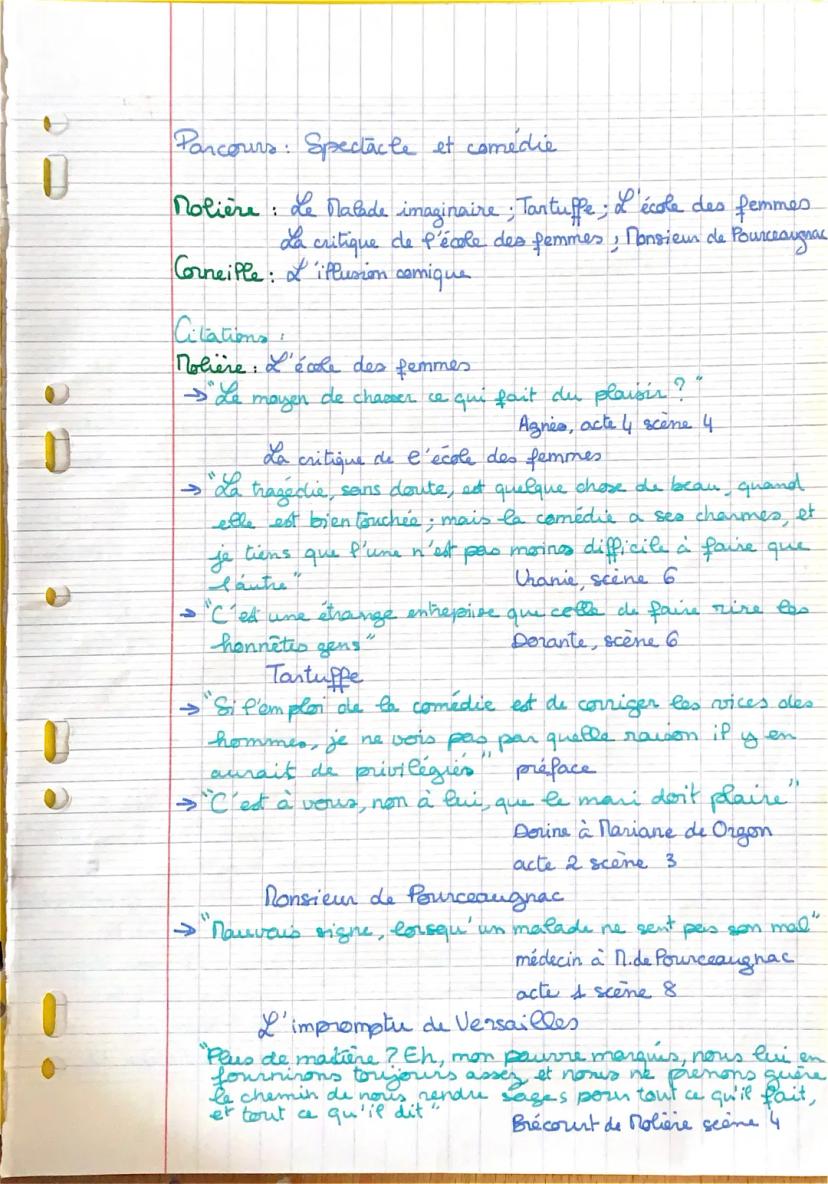 Parcours : Spectacle et comédie
Molière : Le Malade imaginaire ; Tartuffe ; L'école des femmes
La critique de l'école des femmes ; Monsieur de Pourceaugnac
Corneille : L'illusion comique
Citations :
Molière : L'école des femmes
→ "Le moyen de chasser ce qui fait du plaisir ? "
Agnès, acte 4 scène 4
La critique de l'école des femmes
→ "La tragédie, sans doute, est quelque chose de beau, quand
elle est bien touchée ; mais la comédie a ses charmes, et
je tiens que l'une n'est pas moins difficile à faire que
l'autre" Uranie, scène 6
→ "C'est une étrange entreprise que celle de faire rire les
honnêtes gens" Dorante, scène 6
Tartuffe
→ "Si l'emploi de la comédie est de corriger les vices des
hommes, je ne vois pas par quelle raison il y en
aurait de privilégiés" préface
→ "C'est à vous, non à lui, que le mari doit plaire"
Dorine à Mariane de Orgon
acte 2 scène 3
Monsieur de Pourceaugnac
→ "Mauvais signe, lorsqu'un malade ne sent pas son mal"
médecin à M. de Pourceaugnac
acte 1 scène 8
L'impromptu de Versailles
"Plus de matière ? Eh, mon pauvre marquis, nous lui en
fournirons toujours assez, et nous ne prenons guère
le chemin de nous rendre sages pour tout ce qu'il fait,
et tout ce qu'il dit"
Brécourt de Molière scène 4